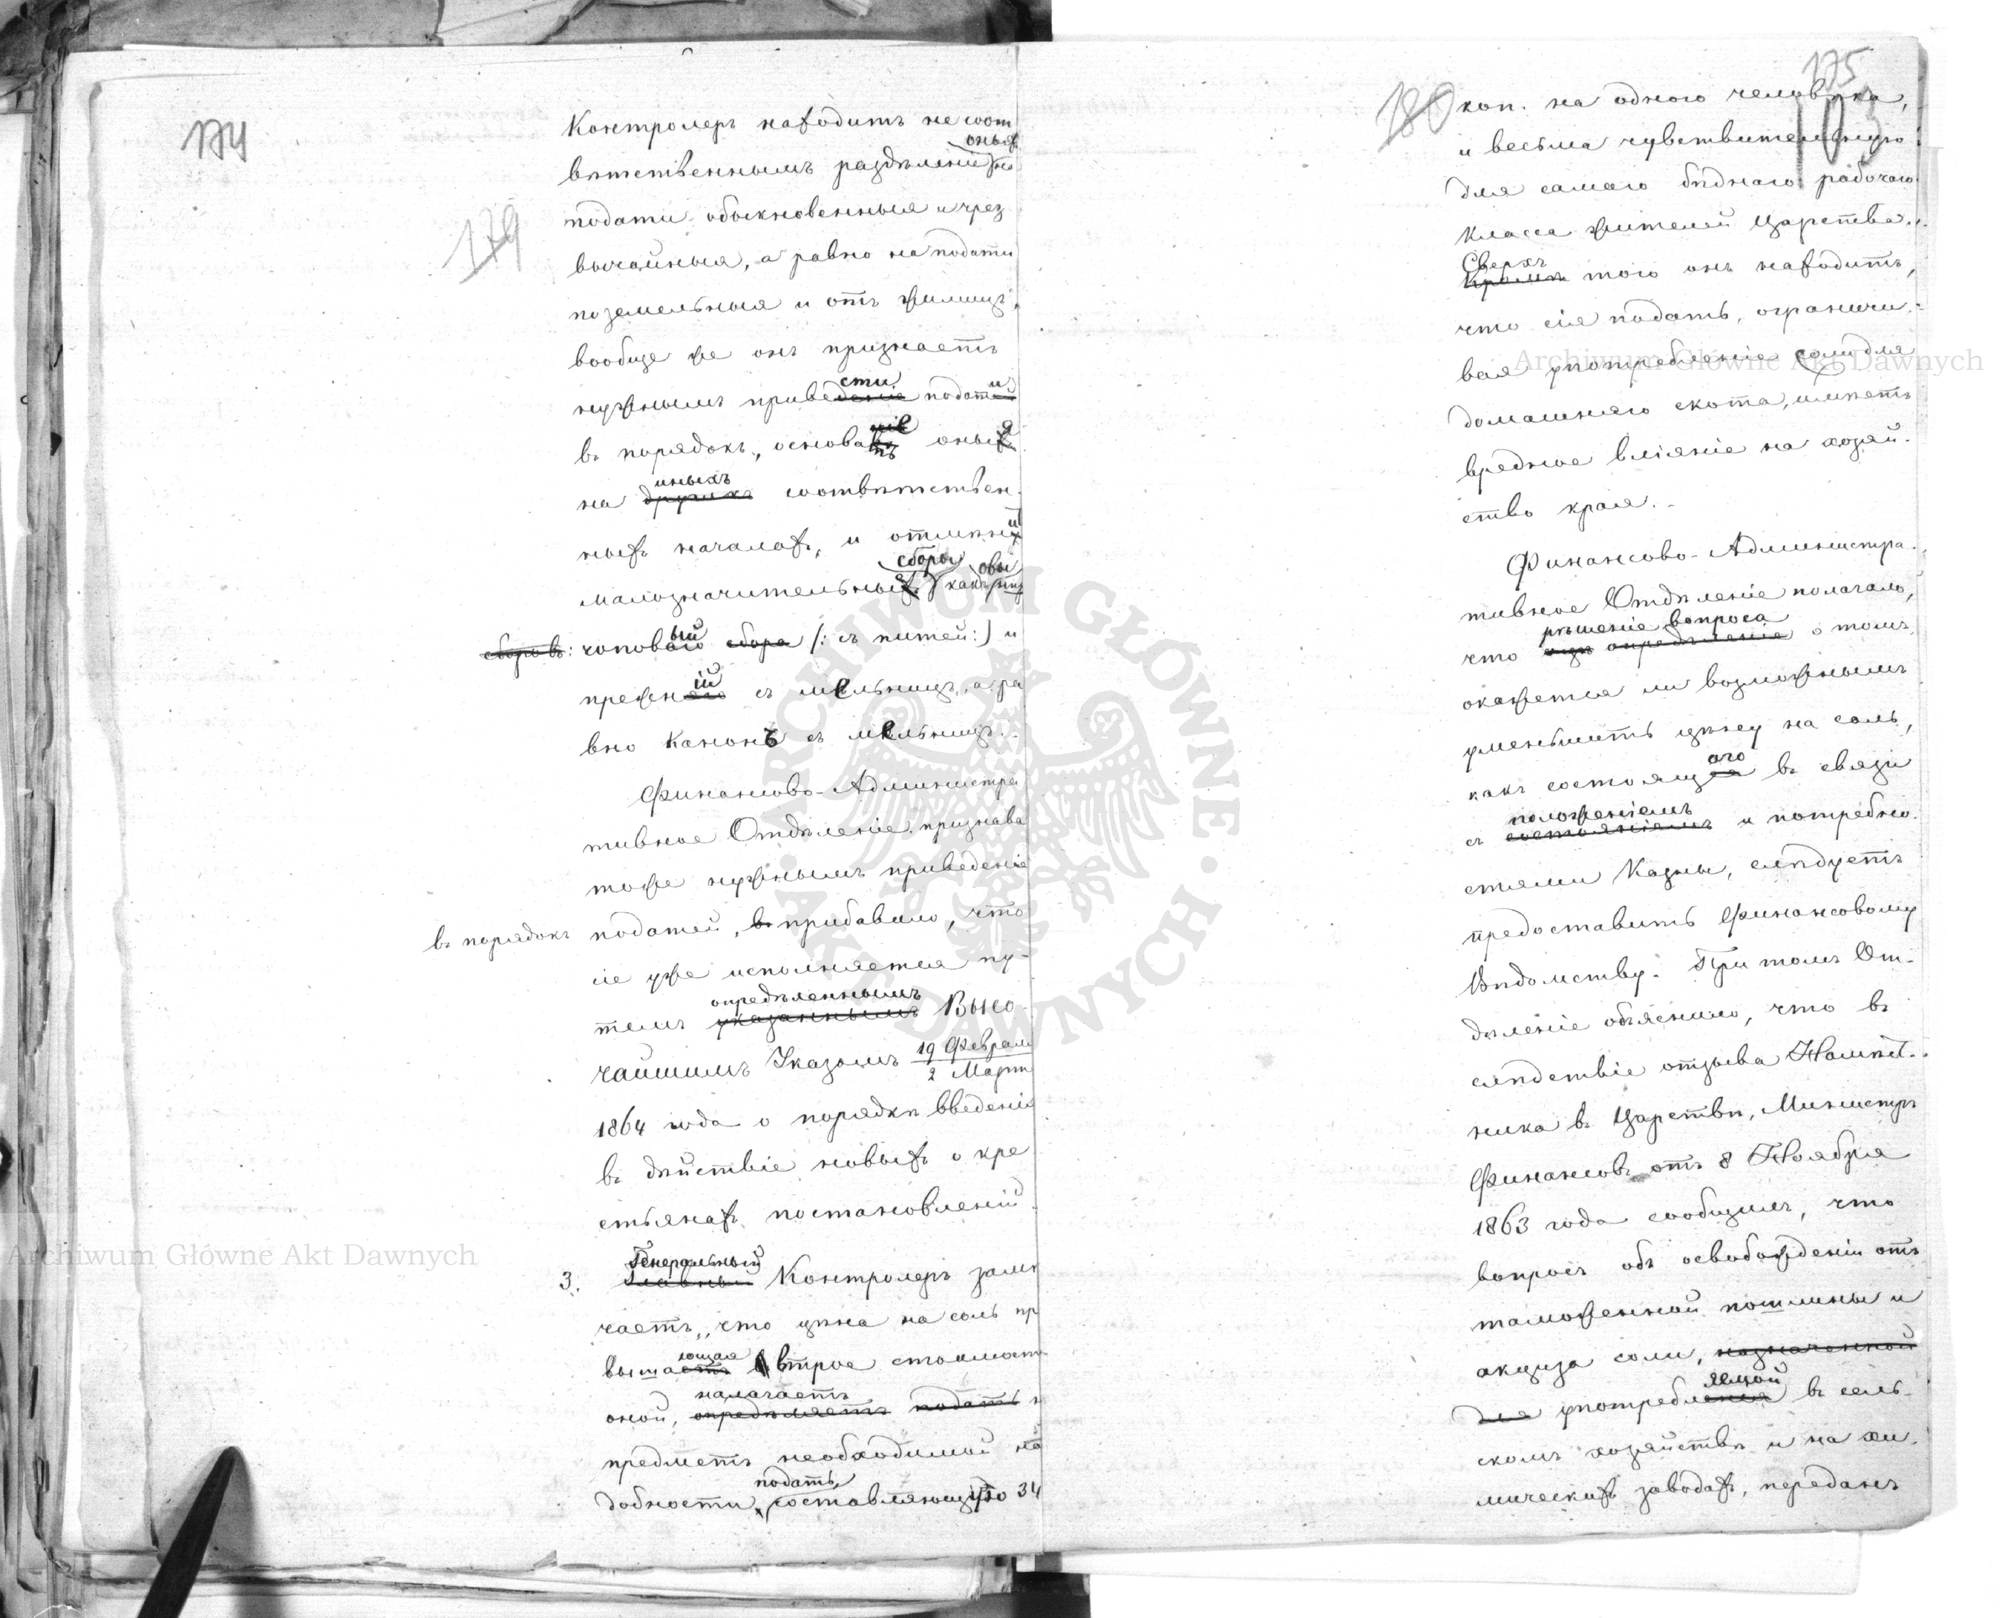 174
179
Контролеръ находитъ не соот
оныя
вѣтственнымъ раздѣленіе на
подати обыкновенныя и чрез
вычайныя, а равно на подати
поземельныя и отъ жилищъ,
вообще же онъ признаетъ
сти и
нужнымъ приведеніе податей
въ порядокъ, основавъ оныя
иныхъ
на другихъ соотвѣтствен-
ныхъ началахъ, и отмѣни
сборы овы
малозначительныхъ какъ
сборовъ: чоповый сбора (: съ питей:) и
прежній съ мельницъ, а ра
вно Канонъ съ мельницъ.
Финансово-Администра
тивное Отдѣленіе, признава
тоже нужнымъ приведеніе
въ порядокъ податей, прибавило, что
сіе уже исполняется пу-
опредѣленнымъ
темъ указаннымъ Высо-
чайшимъ Указомъ 19 Февраля
2 Марта
1864 года о порядкѣ введенія
въ дѣйствіе новыхъ о кре
стьянахъ постановленій.
Генеральный
3. Главный Контролеръ замѣ
чаетъ, что цѣна на соль пр
ющая
вышаетъ втрое стоимость
налагаетъ
оной, опредѣляетъ подать н
предметъ необходимой на
подать,
добности, составляющую 34
175
180
103
коп. на одного человѣка,
и весьма чувствительную
для самаго бѣднаго рабочаго
класса жителей Царства.
Сверхъ
Кромѣ того онъ находитъ,
что сія подать, ограничи-
вая употребленіе соли для
домашняго скота, имѣетъ
вредное вліяніе на хозяй-
ство края.
Финансово-Администра-
тивное Отдѣленіе полагало,
рѣшеніе вопроса
что опредѣленіе о томъ
окажется ли возможнымъ
уменьшить цѣну на соль,
аго
какъ состоящая въ связи
положеніемъ
съ состояніемъ и потребно-
стями Казны, слѣдуетъ
предоставить Финансовому
Вѣдомству. При томъ От-
дѣленіе объяснило, что въ
слѣдствіе отзыва Намѣст-
ника въ Царствѣ, Министръ
Финансовъ отъ 8 Ноября
1863 года сообщилъ, что
вопросъ объ освобожденіи отъ
таможенной пошлины и
акциза соли, назначенной
яемой
для употребленія въ сель-
скомъ хозяйствѣ и на хи-
мическихъ заводахъ, переданъ
Archiwum Główne Akt Dawnych
Archiwum Główne Akt Dawnych
ARCHIWUM GŁÓWNE · AKT DAWNYCH ·